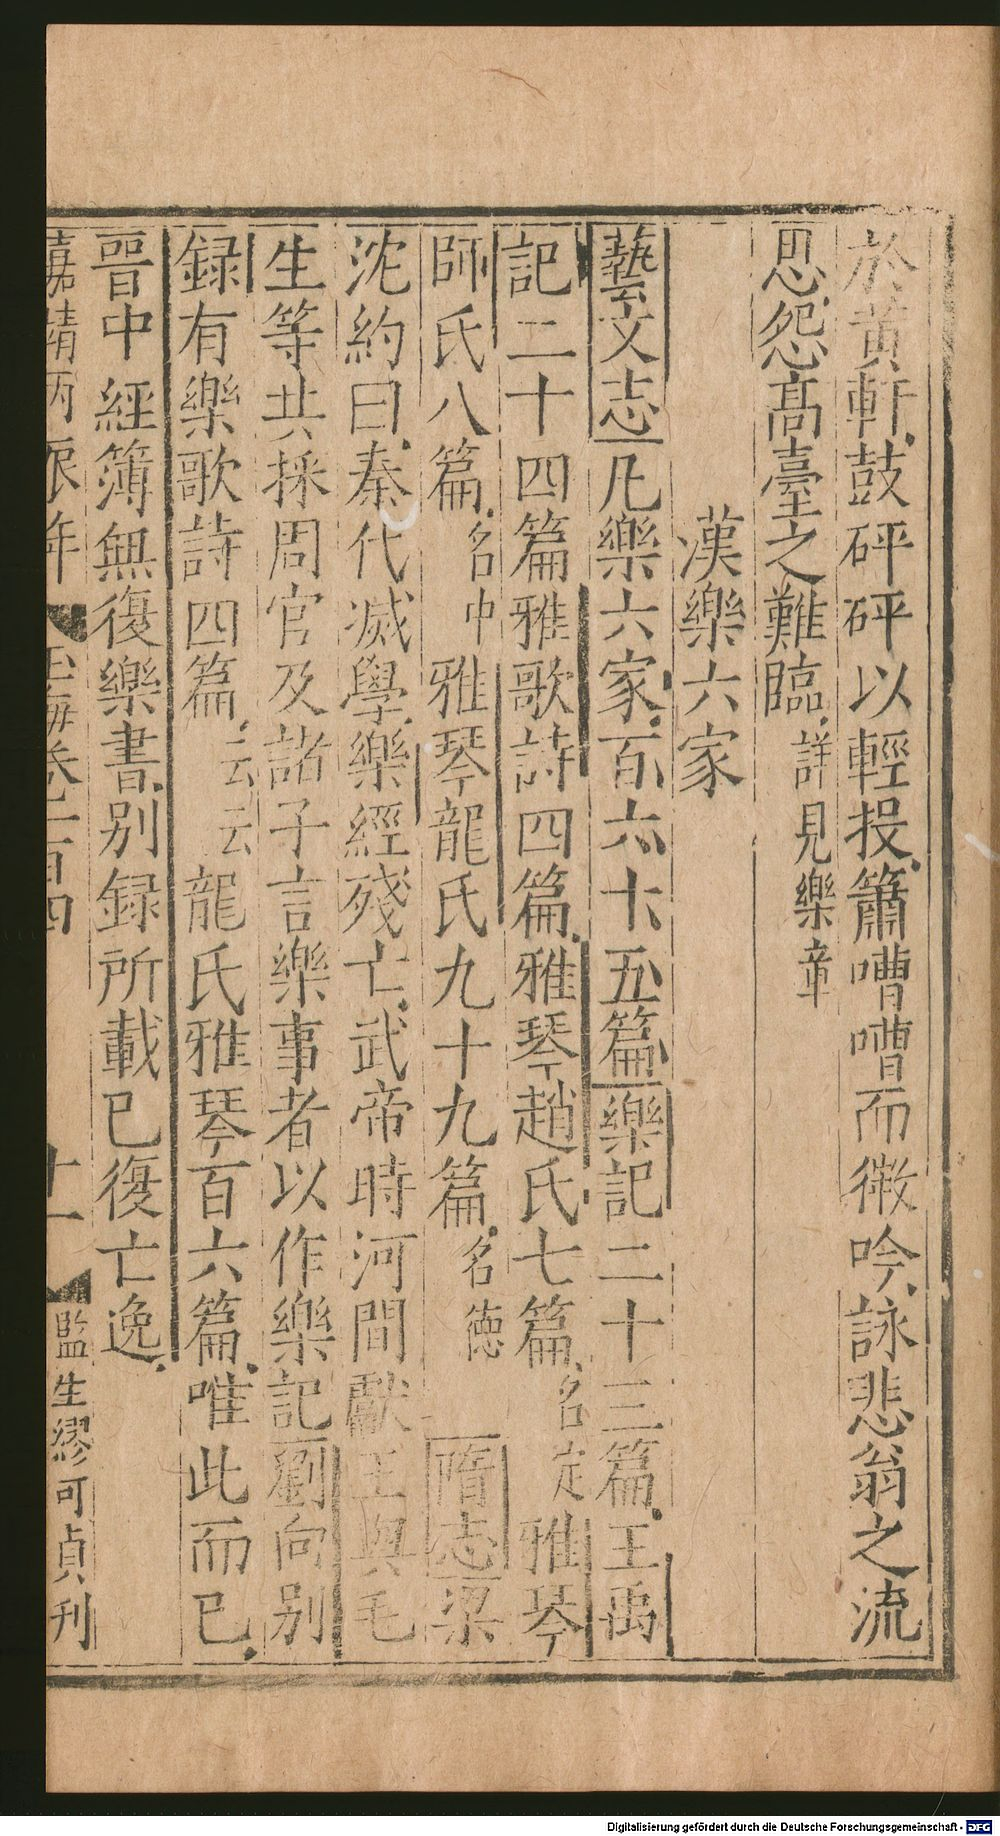 於黃軒鼓砰砰以輕投簫嘈嘈而微吟詠悲翁之流
思怨髙臺之難臨詳見樂章
漢樂六家
藝文志凡樂六家百六十五篇樂記二十三篇王禹
記二十四篇雅歌詩四篇雅琴趙氏七篇名定雅琴
師氏八篇名中雅琴龍氏九十九篇名德隋志梁
沈約曰秦代滅學樂經殘亡武帝時河間獻王與毛
生等共採周官及諸子言樂事者以作樂記劉向别
録有樂歌詩四篇云云龍氏雅琴百六篇唯此而已
晋中經簿無復樂書别録所載已復亡逸
嘉靖丙辰年 玉海卷一百四 十一 監生繆可貞刊
Digitalisierung gefördert durch die Deutsche Forschungsgemeinschaft - DFG